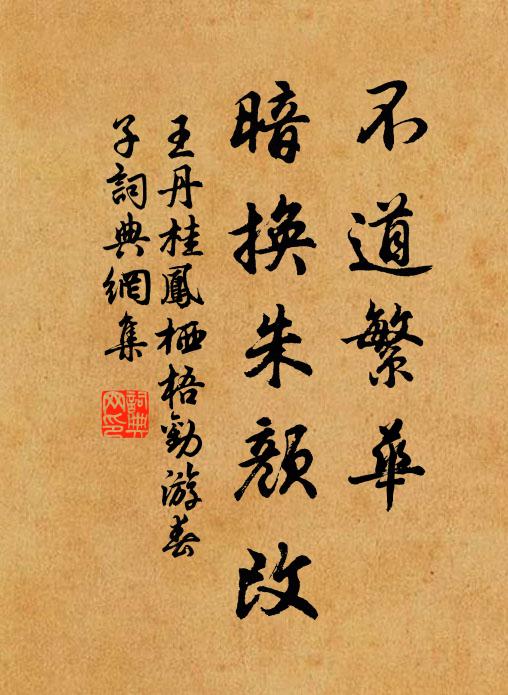 不道繁華
暗換朱顏改
王丹桂鳳栖梧勸游春
子詞典網集
詞典網印